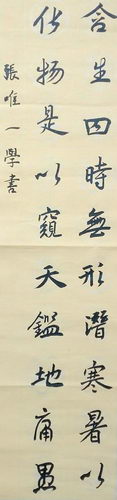 含生四時無形潛寒暑以
化物是以窺天鑑地庸愚
張唯一學書